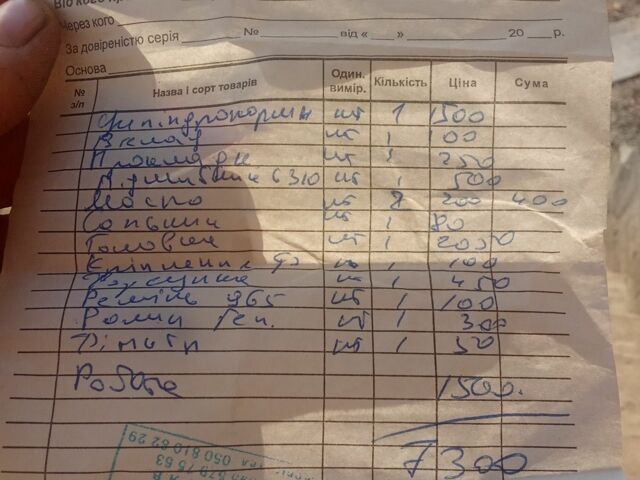 Через кого
За довіреністю серія № від « » 20 р.
Основа
№ з/п Назва і сорт товарів Один. вимір. Кількість Ціна Сума
шт 1 1500
Вклад шт 1 100
Прокладки шт 1 250
Підшибник 6310 шт 1 500
Масло шт 2 200 400
Сольники шт 1 80
Головка шт 1 2000
Кріплення шт 1 100
шт 1 450
Ремінь 965 шт 1 100
Ролик Ген. шт 1 300
шт 1 50
Робота 1500.
7300
050 810 62 29